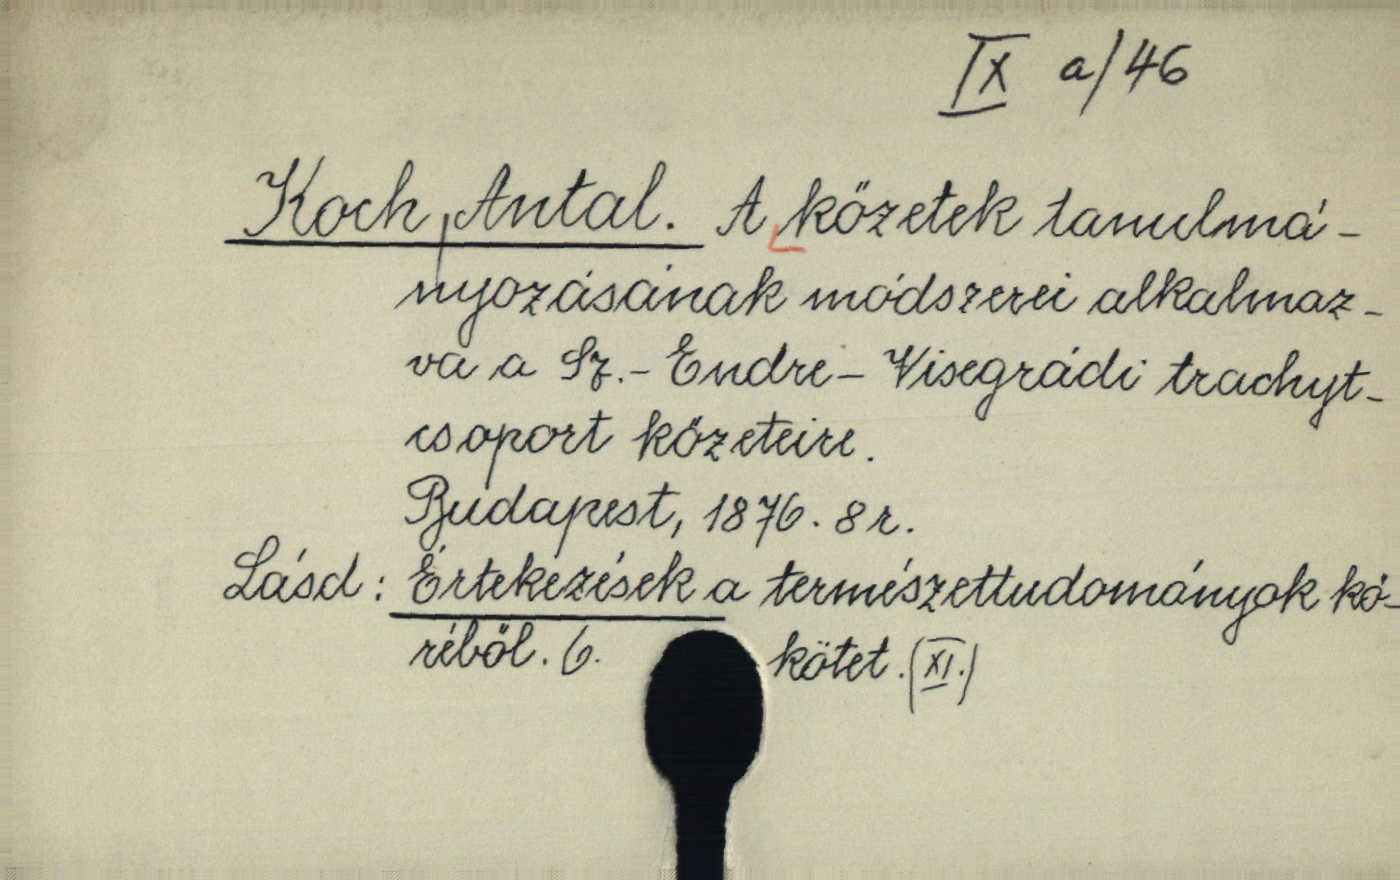 IX a/46
Koch, Antal. A kőzetek tanulmá-
nyozásának módszerei alkalmaz-
va a Sz.-Endre-Visegrádi trachyt-
csoport kőzeteire.
Budapest, 1876. 8 r.
Lásd: Értekezések a természettudományok kö-
réből. 6. kötet. (XI.)